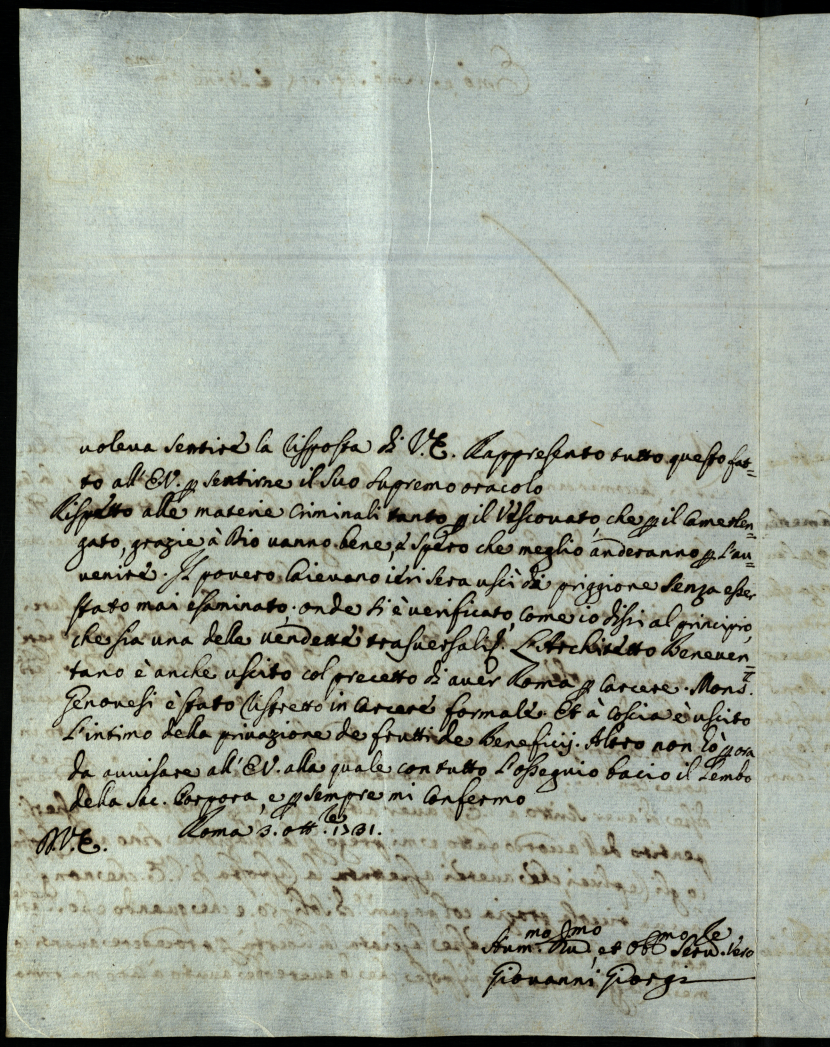 voleva sentire la risposta di V.E. Rappresento tutto questo fat=
to all'E.V. p sentirne il suo supremo oracolo
Rispetto alle materie Criminali tanto p il Vescovato, che p il Camerlen=
gato, grazie à Dio vanno bene, e spero che meglio anderanno p l'av=
venire. Il povero Caievano ieri sera uscì di priggione senza esser
stato mai esaminato, onde si è verificato, come io dissi al principio,
che sia una delle vendette trasversali. L'Architetto Beneven=
tano è anche uscito col precetto di aver Roma p Carcere. Mons.r
Genovesi è stato ristretto in Carcere formale. Et à Coscia è uscito
l'intimo della privazione de frutti de Beneficij. Altro non hò p ora
da avvisare all'E.V. alla quale con tutto l'ossequio bacio il lembo
della Sac. Porpora, e p sempre mi confermo
D.V.E. Roma 3. ott.re 1731.
Hum.mo Dev.mo, et Obb.mo Serv.re Vero
Giovanni Giorgi